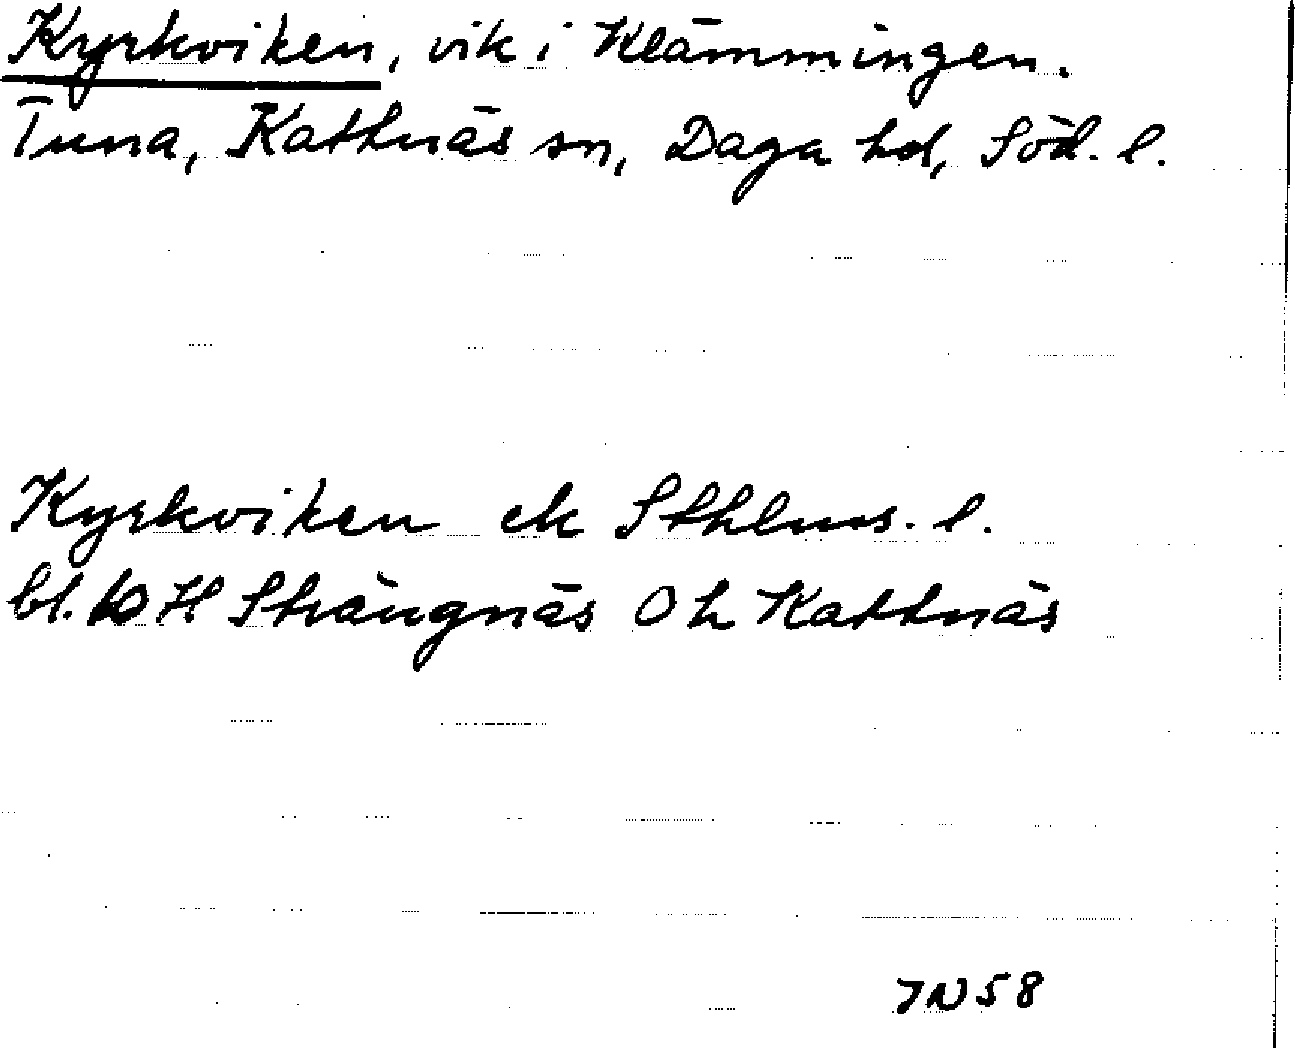 Kyrkviken, vik i Klämmingen.
Tuna, Kattnäs sn, Daga hd, Söd. l.
Kyrkviken ek Sthlms. l.
bl. 10 H Strängnäs O h Kattnäs
JN 58